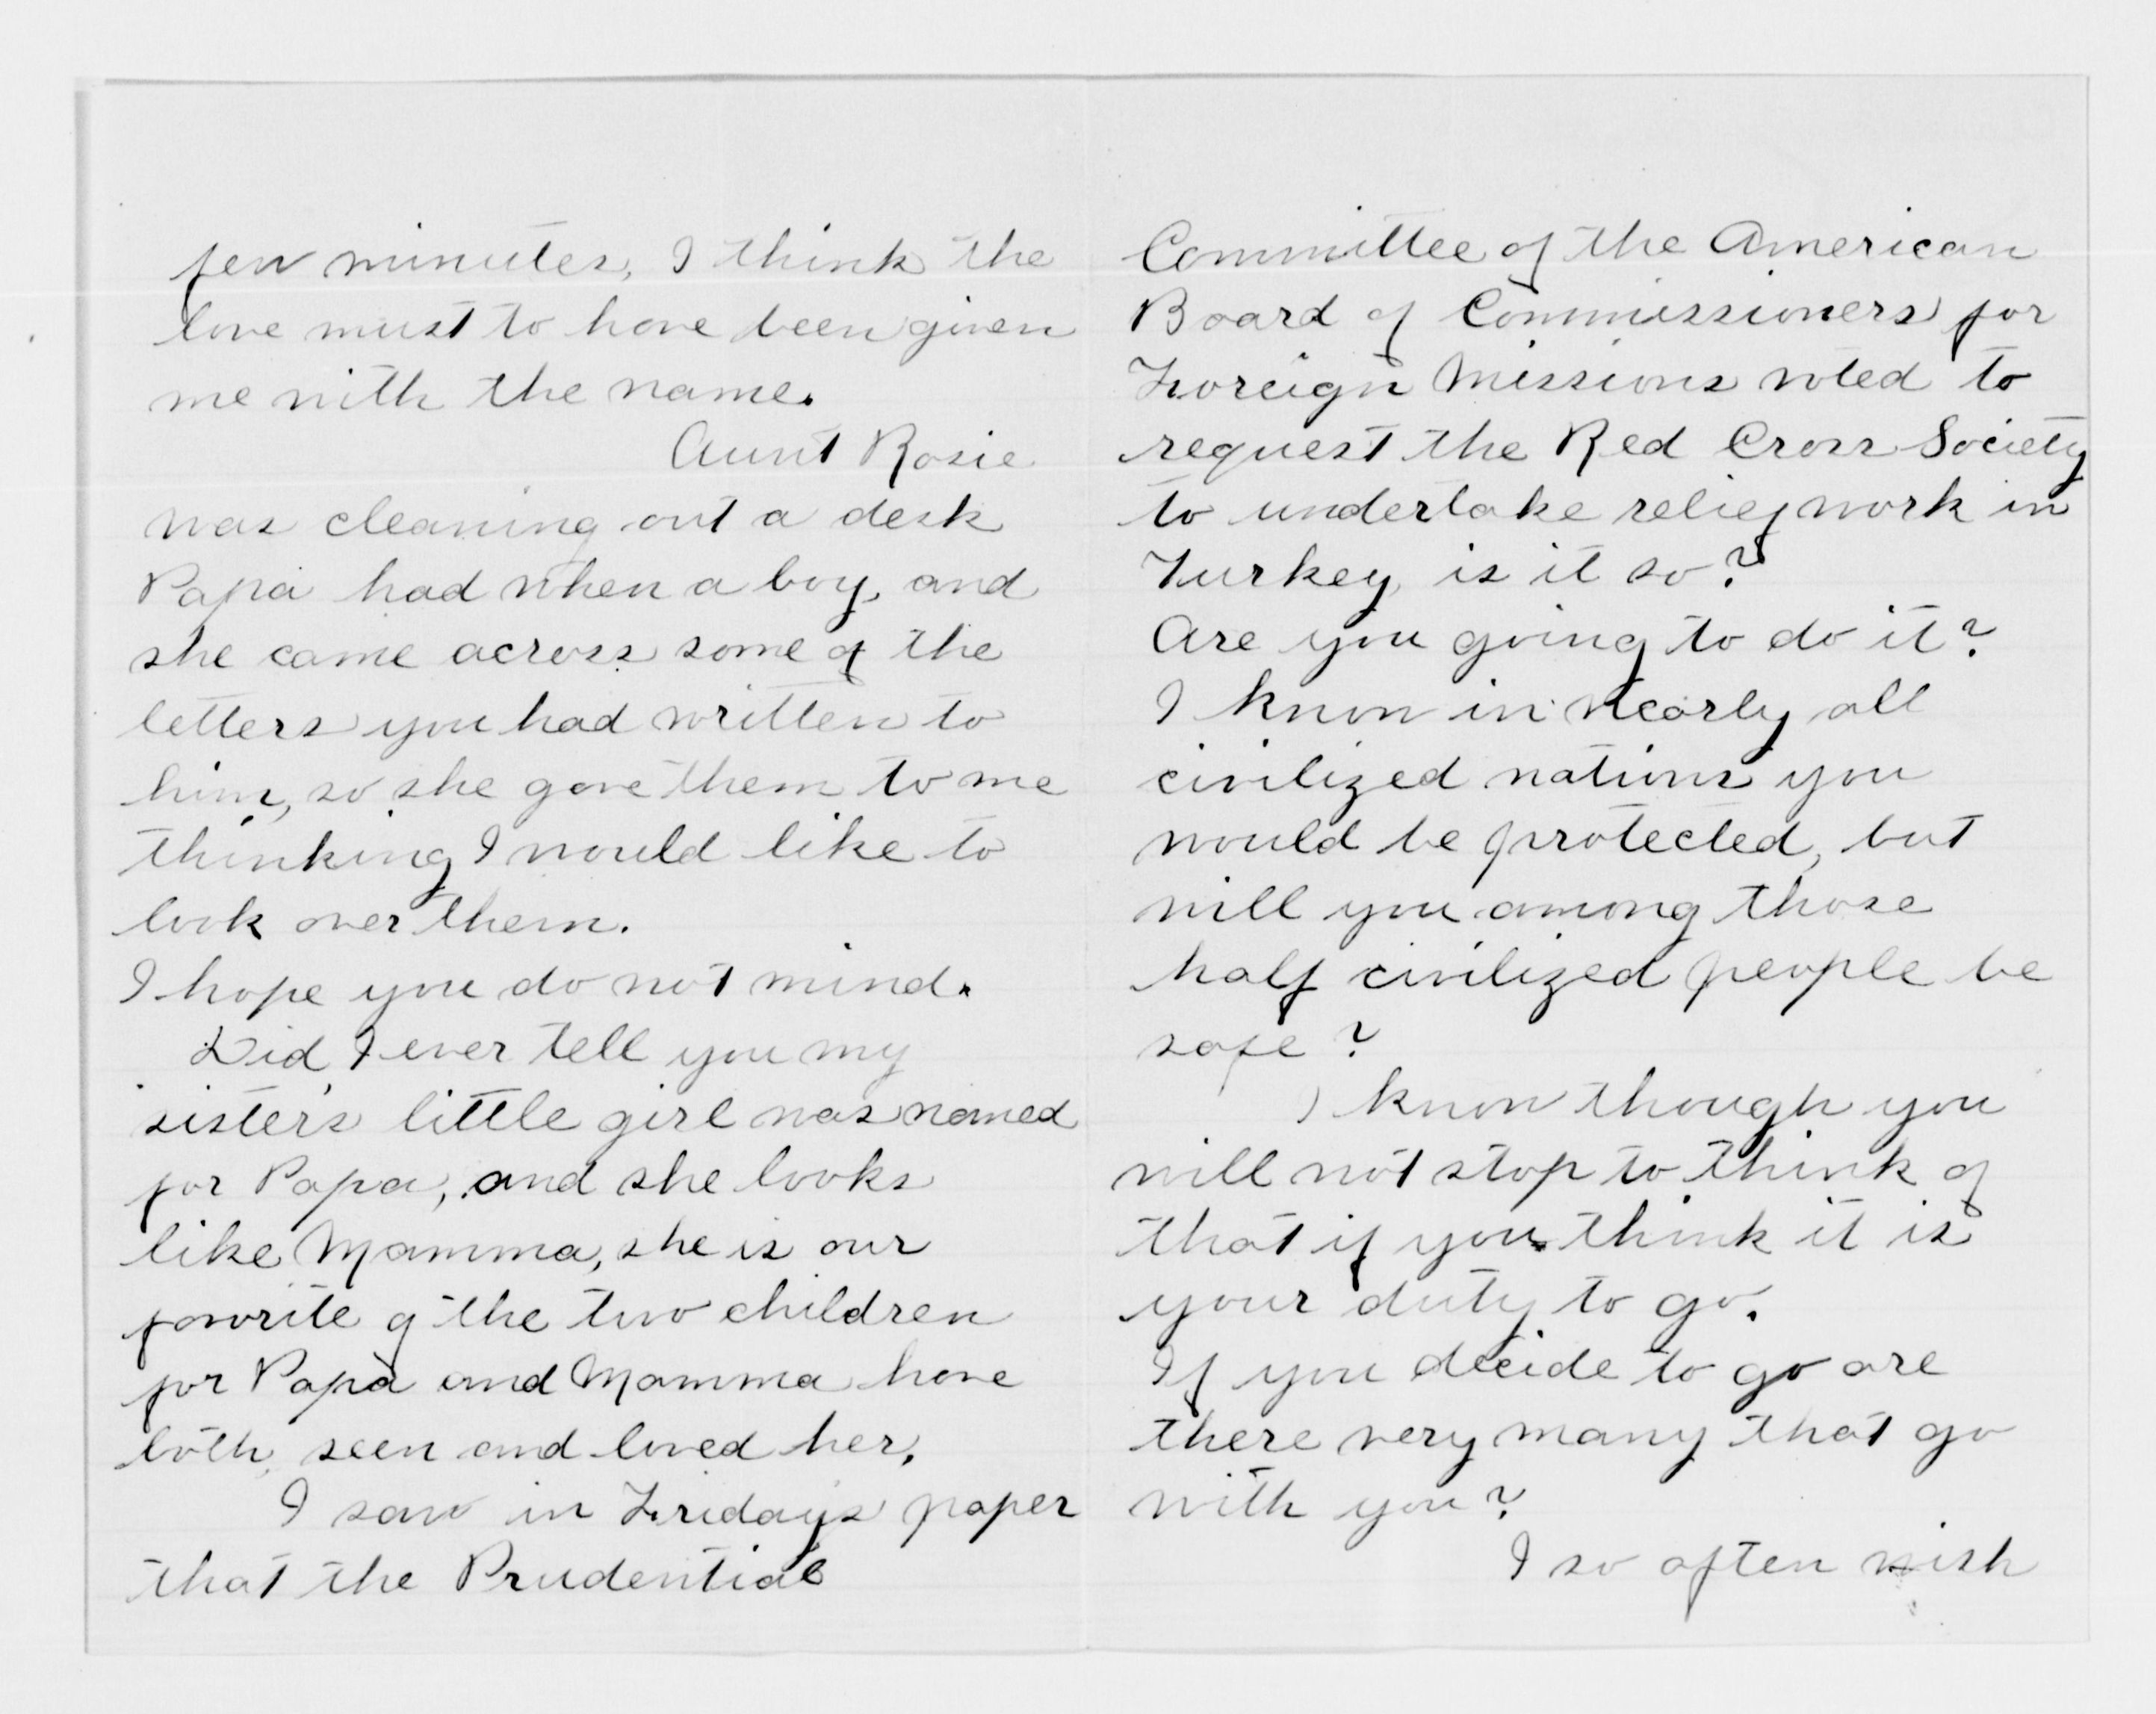 few minutes, I think the
love must to have been given
me with the name.
Aunt Rosie
was cleaning out a desk
Papa had when a boy, and
she came across some of the
letters you had written to
him, so she gave them to me
thinking I would like to
look over them.
I hope you do not mind.
Did I ever tell you my
sister's little girl was named
for Papa, and she looks
like Mamma, she is our
favorite of the two children
for Papa and Mamma have
both seen and loved her.
I saw in Fridays paper
that the Prudential
Committee of the American
Board of Commissioners for
Foreign Missions voted to
request the Red Cross Society
to undertake relief work in
Turkey, is it so?
Are you going to do it?
I know in nearly all
civilized nations you
would be protected, but
will you among those
half civilized people be
safe?
I know though you
will not stop to think of
that if you think it is
your duty to go.
If you decide to go are
there very many that go
with you?
I so often wish